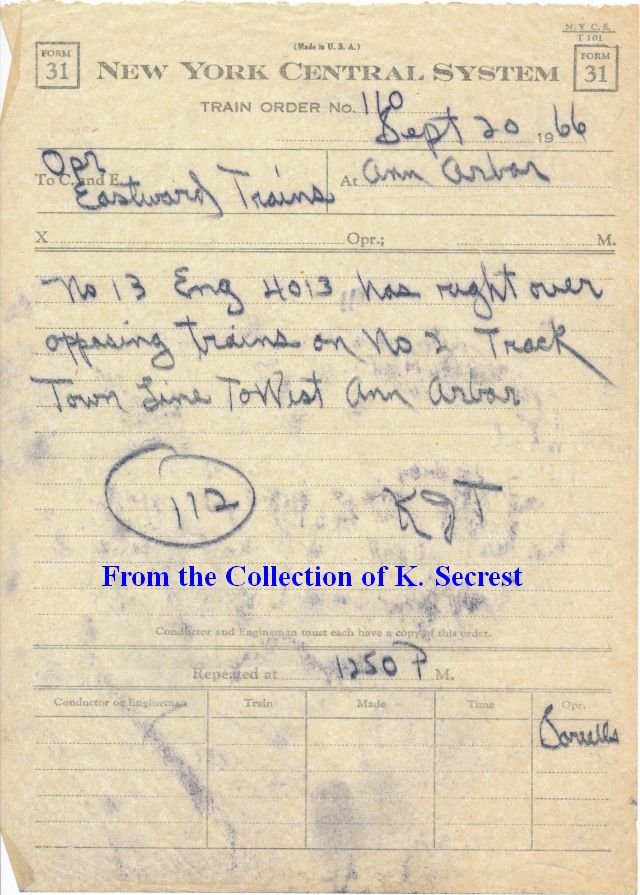 N.Y.C.S.
T 101
(Made in U. S. A.)
FORM 31
NEW YORK CENTRAL SYSTEM
FORM 31
TRAIN ORDER No. 110
Sept 20 1966
Opr
To C. and E. Eastward Trains
At Ann Arbor
X Opr.; M.
No 13 Eng 4013 has right over
opposing trains on No 2 Track
Town Line To West Ann Arbor
112
KJT
From the Collection of K. Secrest
Conductor and Engineman must each have a copy of this order.
Repeated at 1250 P M.
Conductor or Engineman Train Made Time Opr.